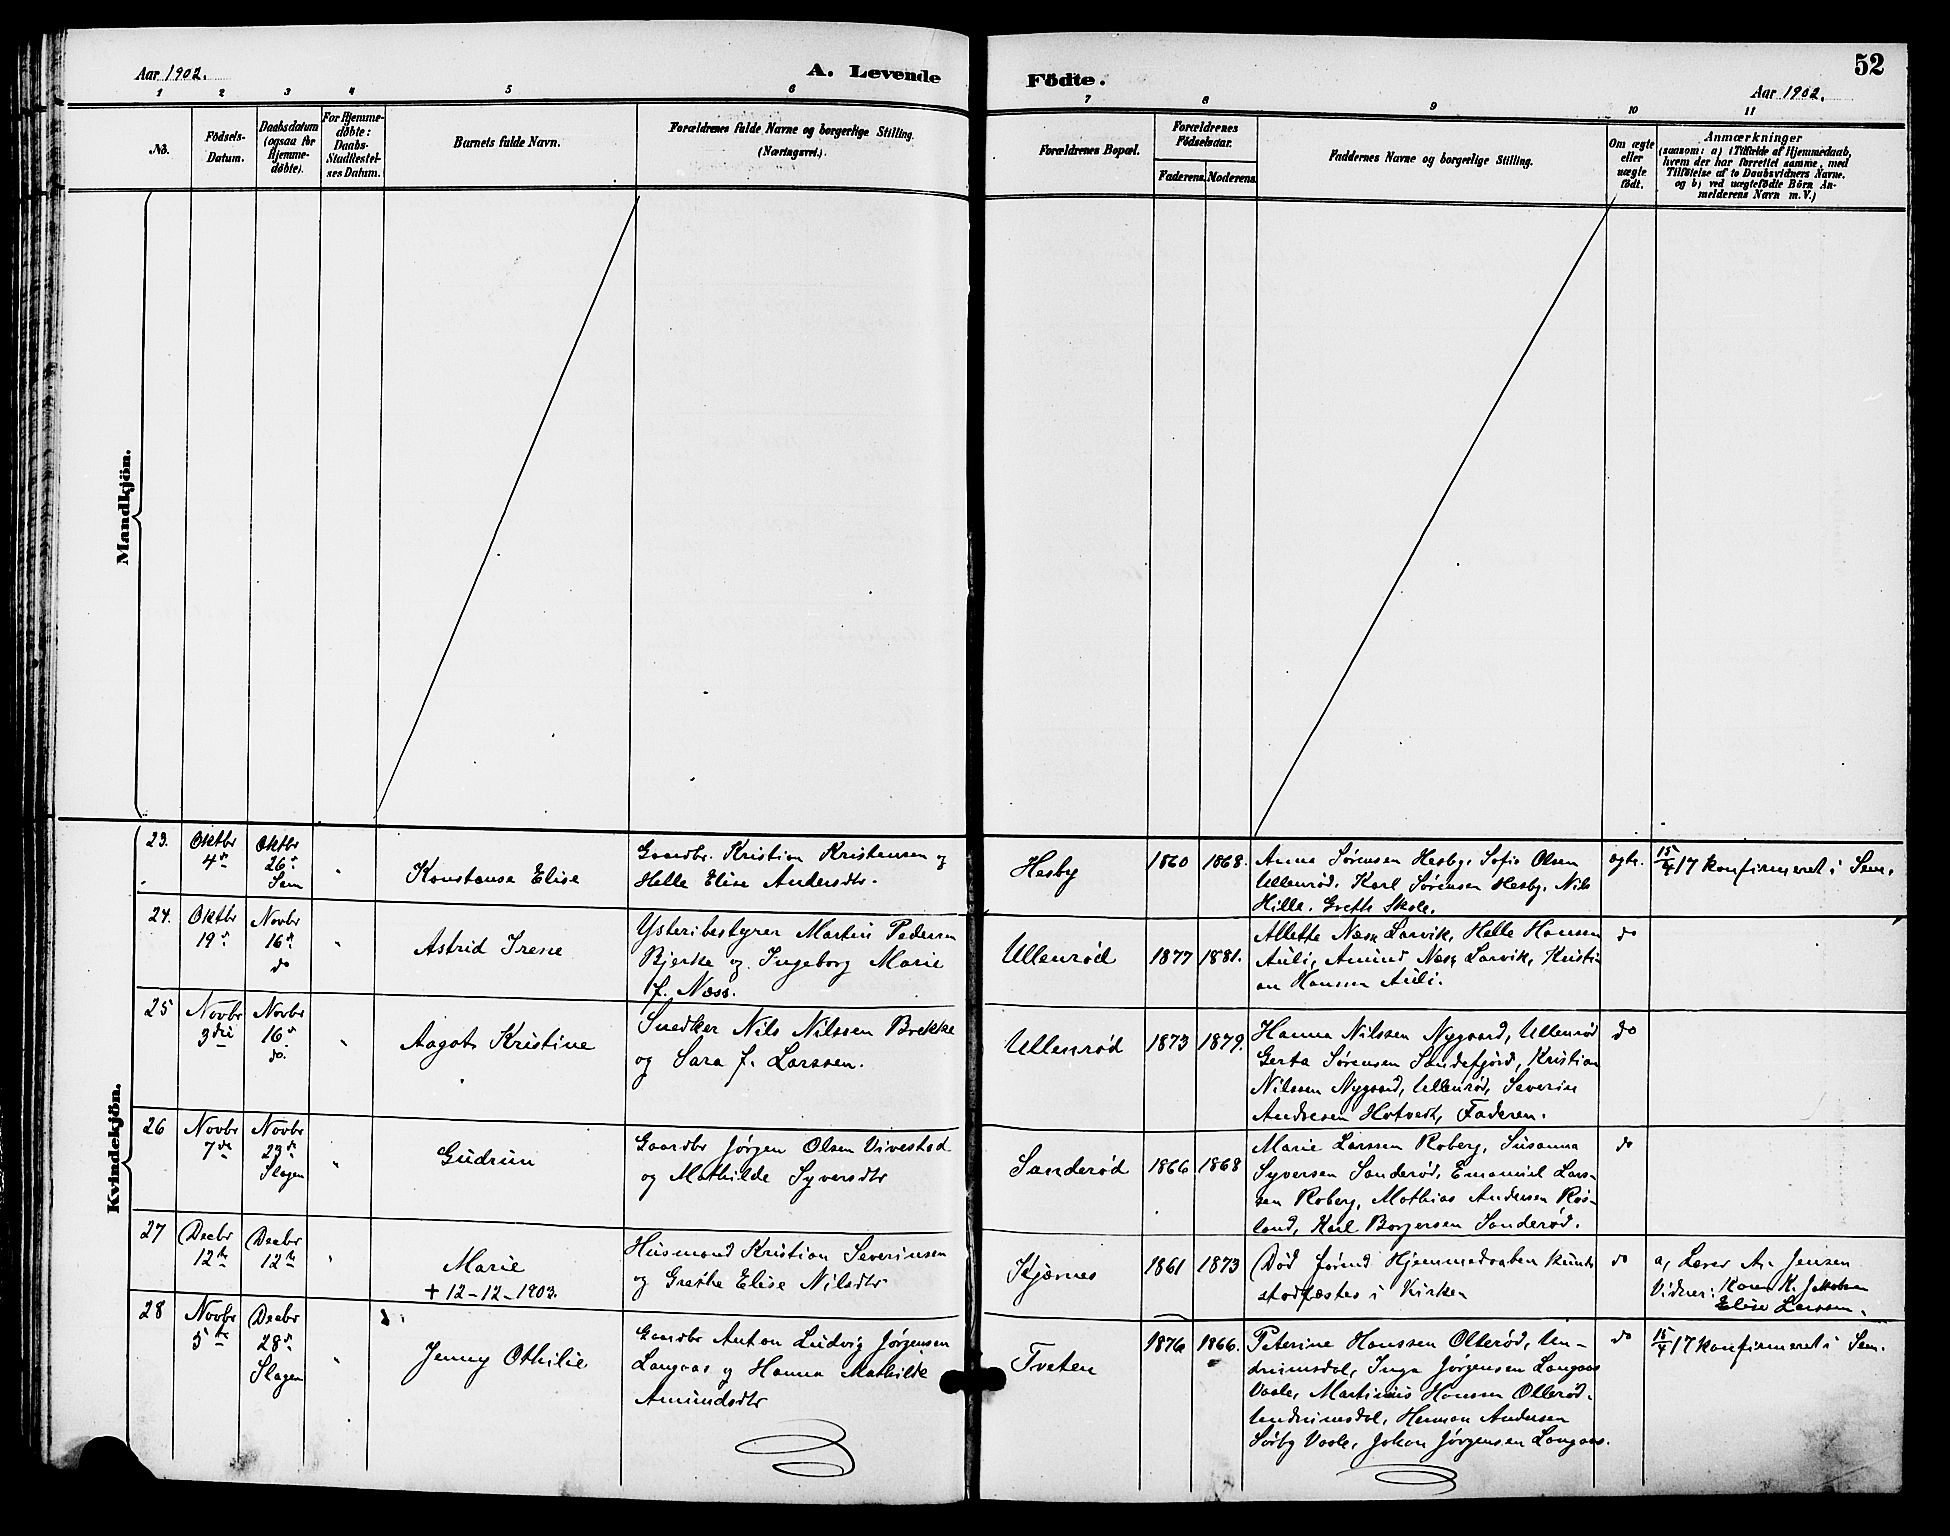 Aar 1902.
A. Levende
Födte.
52
Aar 1902.
1 2 3 4 5 6 7 8 9 10 11
No.
Födsels-
Datum.
Daabsdatum
(ogsaa for
Hjemme-
døbte).
For Hjemme-
døbte:
Daabs-
Stadfæstel-
ses Datum.
Barnets fulde Navn.
Forældrenes fulde Navne og borgerlige Stilling.
(Næringsvei.)
Forældrenes Bopæl.
Forældrenes
Födselsaar.
Faderens. Moderens.
Faddernes Navne og borgerlige Stilling.
Om ægte
eller
uægte
født.
Anmærkninger
(saasom: a) i Tilfælde af Hjemmedaab,
hvem der har forrettet samme, med
Tilføielse af to Daabsvidners Navne.
og b) ved uægtefødte Börn An-
melderens Navn m. V.)
Mandkjön.
Kvindekjön.
23.
Oktbr
4de
Oktbr
26de
Sem
"
Konstanse Elise
Gaardbr. Kristian Kristensen og
Helle Elise Andersdtr.
Hesby
1860
1868.
Anna Sørensen Hesby, Sofie Olsen
Ullenrød. Karl Sørensen Hesby. Nils
Hille. Greth Skole.
ægte.
15/4 17 konfirmeret i Sem.
24.
Oktbr
19de
Novbr
16de
do
"
Astrid Irene
Ysteribestyrer Martin Pedersen
Bjerke og Ingeborg Marie
f. Næss.
Ullenrød
1877
1881.
Allette Næss Larvik, Helle Hansen
Auli, Amund Næss Larvik, Kristi
an Hansen Auli.
do
25
Novbr
3die
Novbr
16de
do.
"
Aagot Kristine
Snedker Nils Nilssen Brekke
og Sara f. Larssen.
Ullenrød
1873
1879.
Hanna Nilssen Nygaard, Ullenrød
Gerta Sørensen Sandefjord, Kristian
Nilssen Nygaard, Ullenrød, Severin
Andresen Hotvedt, Faderen.
do
26
Novbr
7de
Novbr
23de
Slagen
"
Gudrun
Gaardbr Jørgen Olsen Vivestad
og Mathilde Syversdtr
Sanderød
1866
1868
Marie Larssen Roberg, Susanna
Syversen Sanderød, Emanuel Lars-
sen Roberg, Mathias Andersen Ros-
land, Karl Borgersen Sanderød.
do
27
Decbr
12te
Decbr
12te
"
Marie
+ 12-12-1903.
Husmand Kristian Severinsen
og Grethe Elise Nilsdtr
Kjærnes
1861
1873
Død førend Hjemmedaaben kunde
stadfæstes i Kirken
do
a, Lærer A. Jensen
Vidner: K. Jakobsen
Elise Larssen.
28
Novbr
5te
Decbr
28de
Slagen
"
Jenny Othilie
Gaardbr Anton Ludvig Jørgensen
Langaas og Hanna Mathilde
Amundsdtr
Tveten
1876
1866.
Peterine Hanssen Olterød, Un-
drumsdal, Inga Jørgensen Langaas
Vaale, Martinius Hansen Olterød.
Undrumsdal, Herman Andersen
Sørby Vaale, Johan Jørgensen Langaas.
do
15/4 17 konfirmeret i Sem.